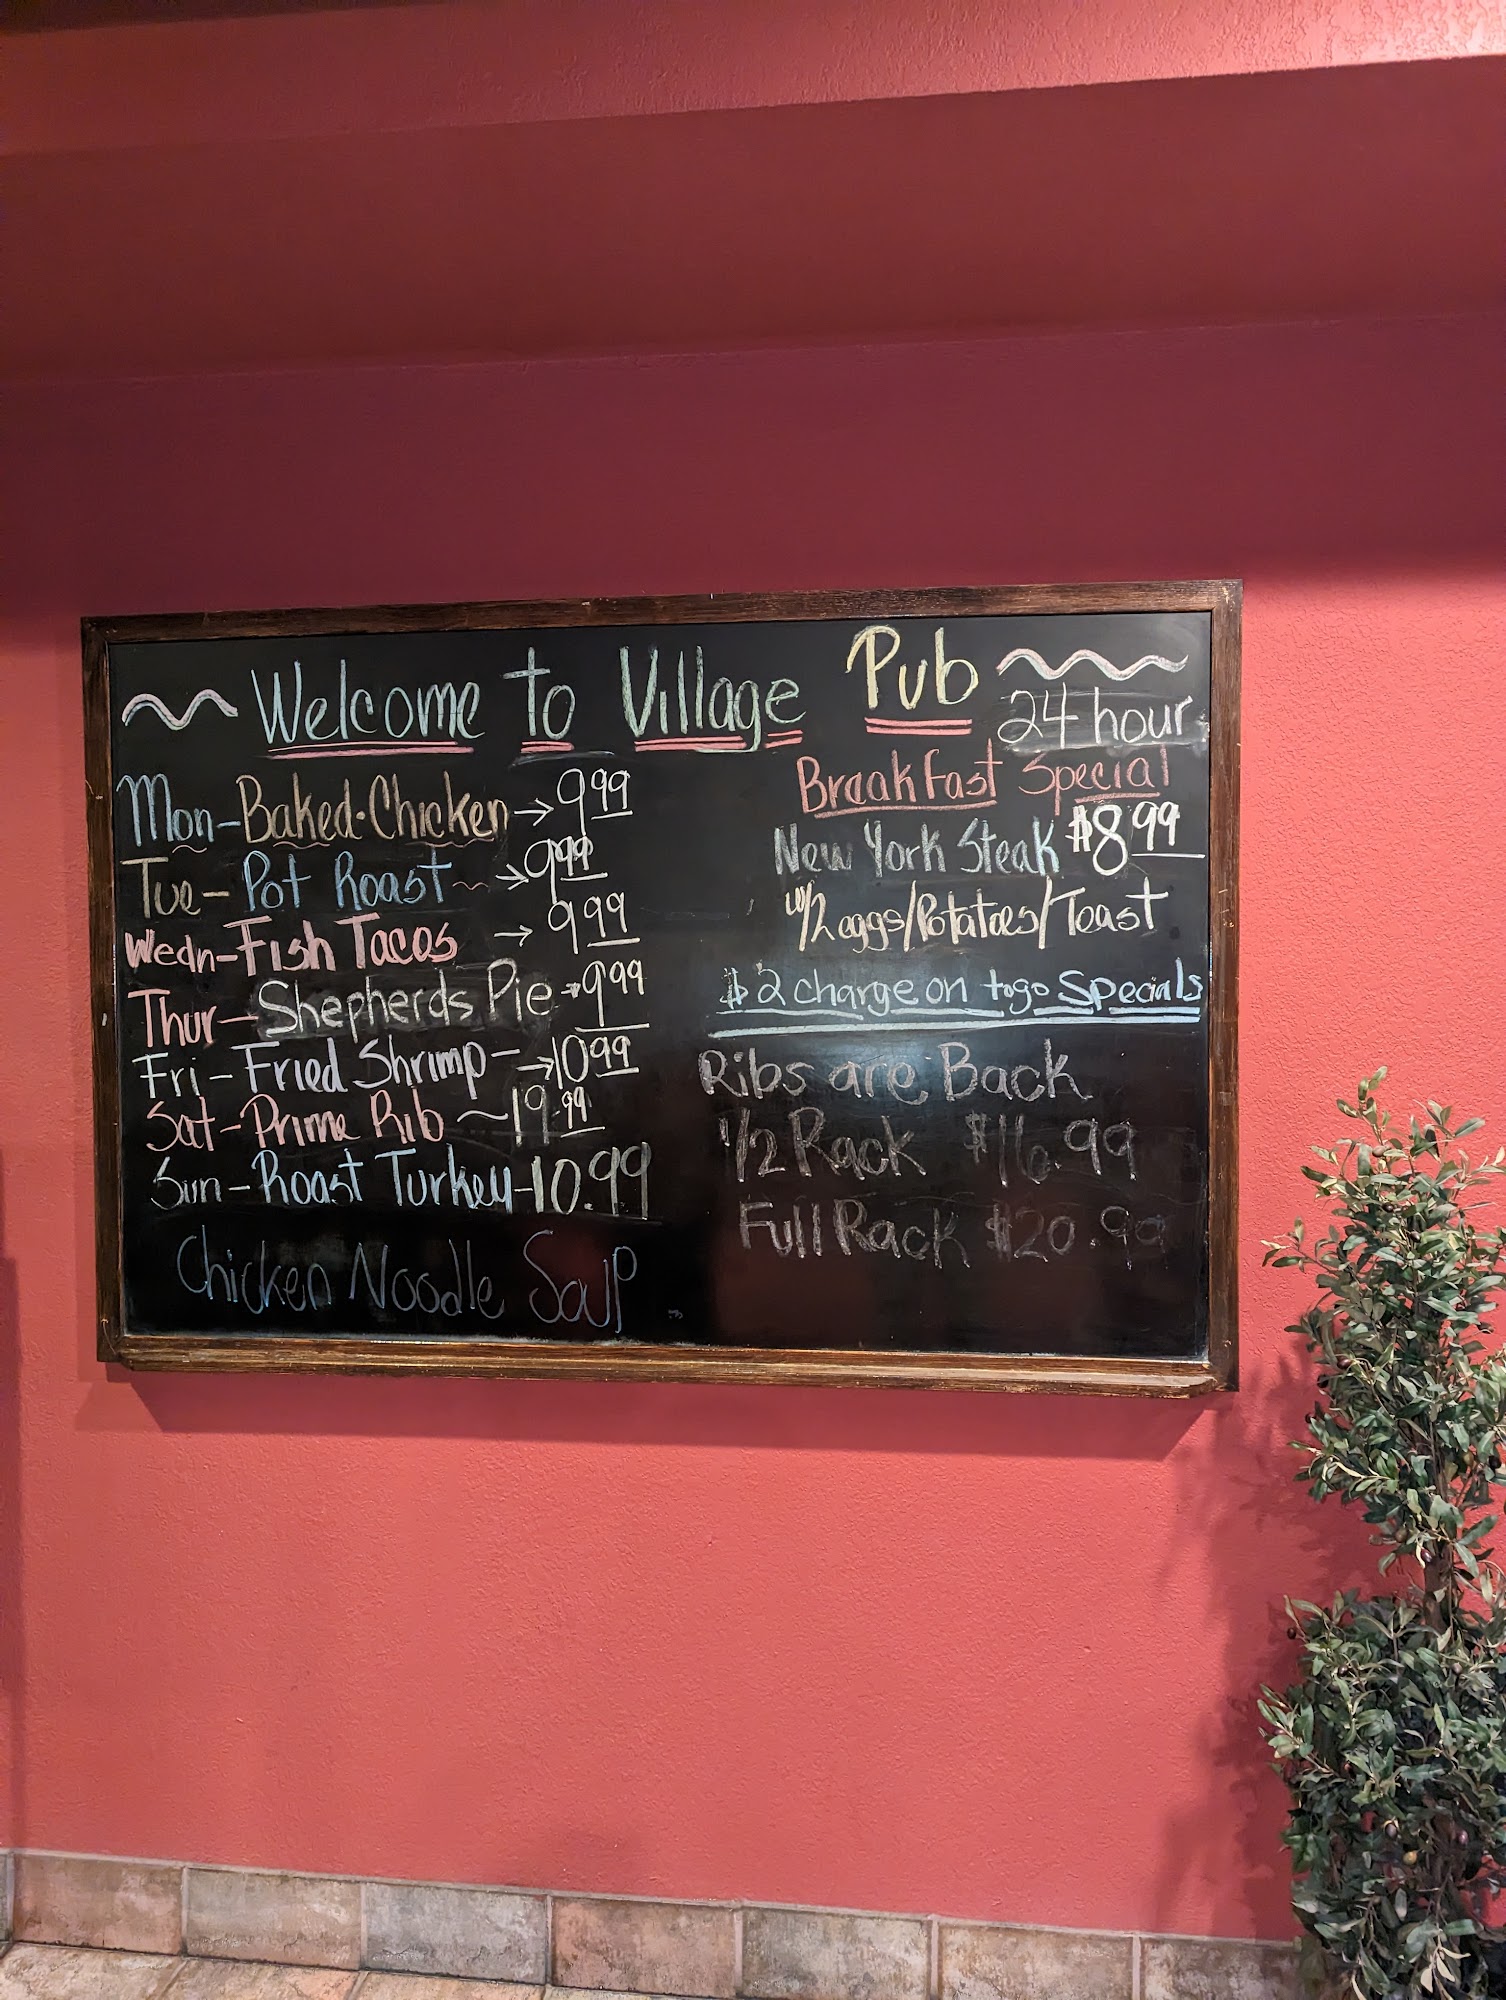 Welcome to Village Pub
Mon-Baked·Chicken → 9.99
Tue- Pot Roast ~ → 9.99
Wedn-Fish Tacos → 9.99
Thur-Shepherds Pie → 9.99
Fri-Fried Shrimp- → 10.99
Sat-Prime Rib ~ 19.99
Sun-Roast Turkey-10.99
Chicken Noodle Soup
24 hour
BreakFast Special
New York Steak $8.99
w/2 eggs/Potatoes/Toast
$2 charge on togo Specials
Ribs are Back
1/2 Rack $16.99
Full Rack $20.99